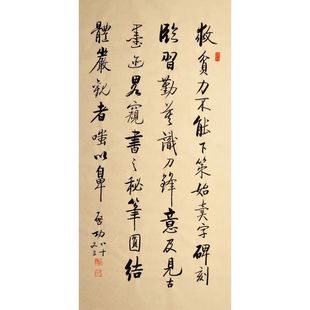 救貧力不能下策始賣字碑刻
臨習勤莫識刀鋒意及見古
墨迹略窺書之秘筆圓結
體嚴觀者嗤以鼻
啟功八十又三